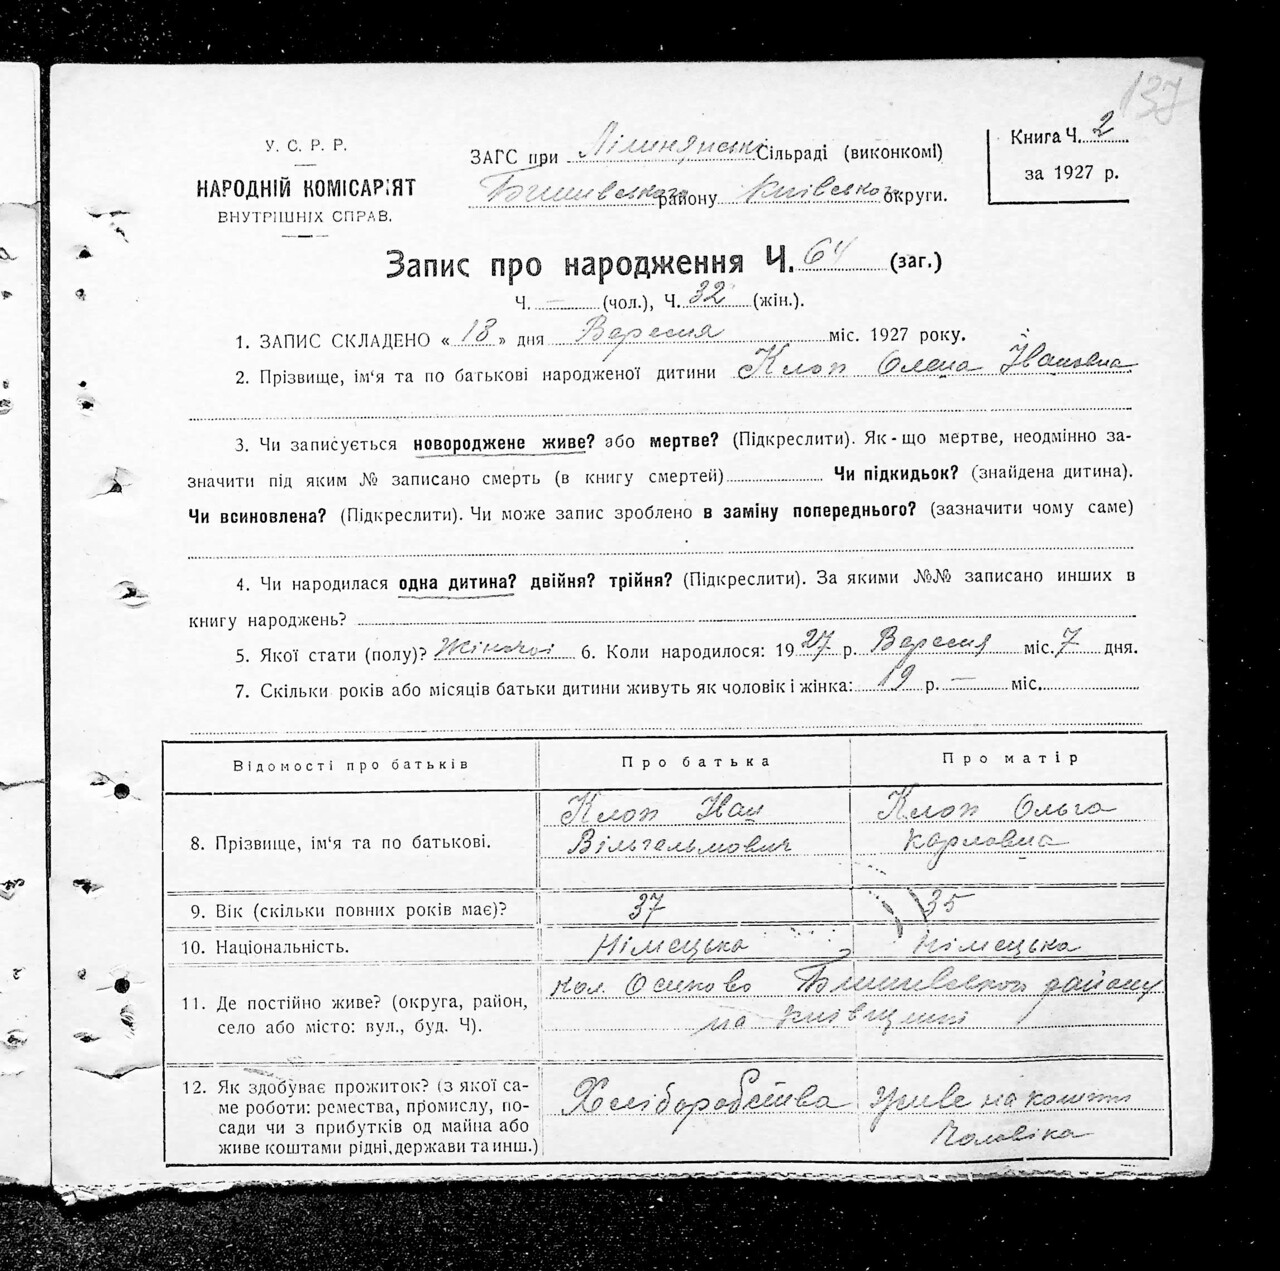 137
У. С. Р. Р.
НАРОДНІЙ КОМІСАРІЯТ
ВНУТРІШНІХ СПРАВ.
ЗАГС при Сільраді (виконкомі)
Бишівського району Київського округи.
Книга Ч. 2
за 1927 р.
Запис про народження Ч. 64 (заг.)
Ч. — (чол.), Ч. 32 (жін.).
1. ЗАПИС СКЛАДЕНО « 18 » дня Вересня міс. 1927 року.
2. Прізвище, ім'я та по батькові народженої дитини Клоп Олена Івановна
3. Чи записується новороджене живе? або мертве? (Підкреслити). Як-що мертве, неодмінно за-
значити під яким № записано смерть (в книгу смертей) Чи підкидьок? (знайдена дитина).
Чи всиновлена? (Підкреслити). Чи може запис зроблено в заміну попереднього? (зазначити чому саме)
4. Чи народилася одна дитина? двійня? трійня? (Підкреслити). За якими №№ записано инших в
книгу народжень?
5. Якої стати (полу)? Жіночоі 6. Коли народилося: 1927 р. Вересня міс. 7 дня.
7. Скільки років або місяців батьки дитини живуть як чоловік і жінка: 19 р. — міс.
Відомості про батьків Про батька Про матір
8. Прізвище, ім'я та по батькові. Клоп Іван Вільгельмович Клоп Ольга Карловна
9. Вік (скільки повних років має)? 37 35
10. Національність. Німецька Німецька
11. Де постійно живе? (округа, район, кол. Осиково Бишівського району
село або місто: вул., буд. Ч). на Київщині
12. Як здобуває прожиток? (з якої са- Хліборобства Живе на кошти
ме роботи: ремества, промислу, по- чоловіка
сади чи з прибутків од майна або
живе коштами рідні, держави та инш.)